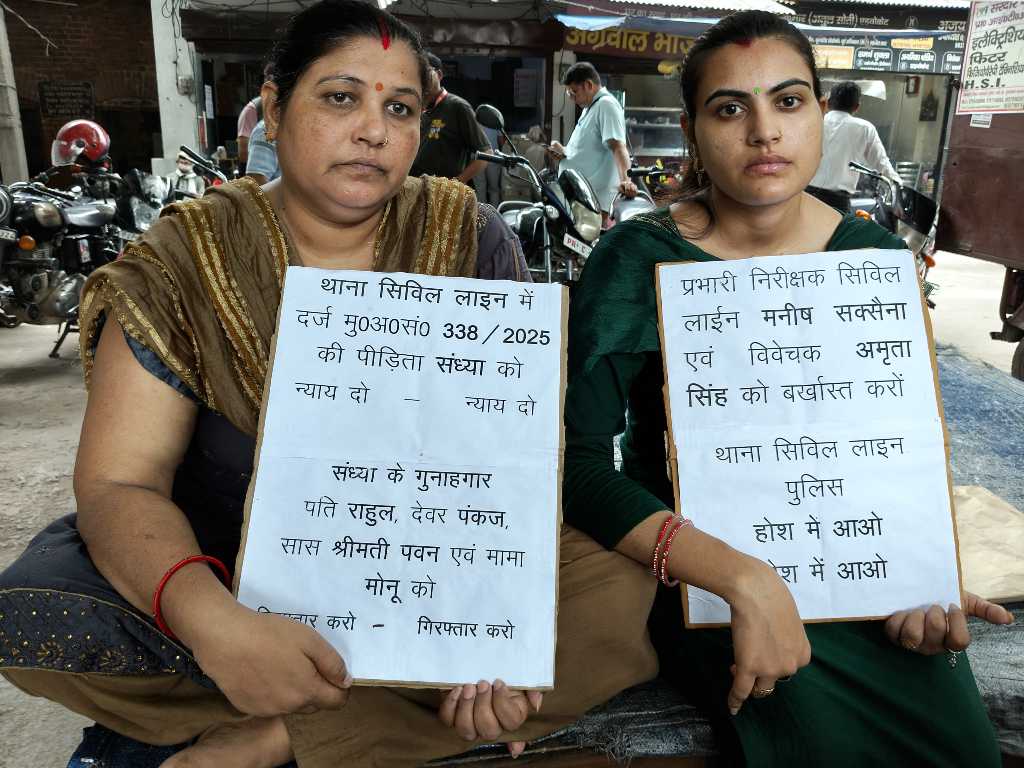 थाना सिविल लाइन में
दर्ज मु0अ0सं0 338 / 2025
की पीड़िता संध्या को
न्याय दो – न्याय दो
संध्या के गुनाहगार
पति राहुल, देवर पंकज,
सास श्रीमती पवन एवं मामा
मोनू को
करो - गिरफ्तार करो
प्रभारी निरीक्षक सिविल
लाईन मनीष सक्सैना
एवं विवेचक अमृता
सिंह को बर्खास्त करों
थाना सिविल लाईन
पुलिस
होश मे आओ
में आओ
अग्रवाल
इलैक्ट्रिशि
फिटर
H.S.I.